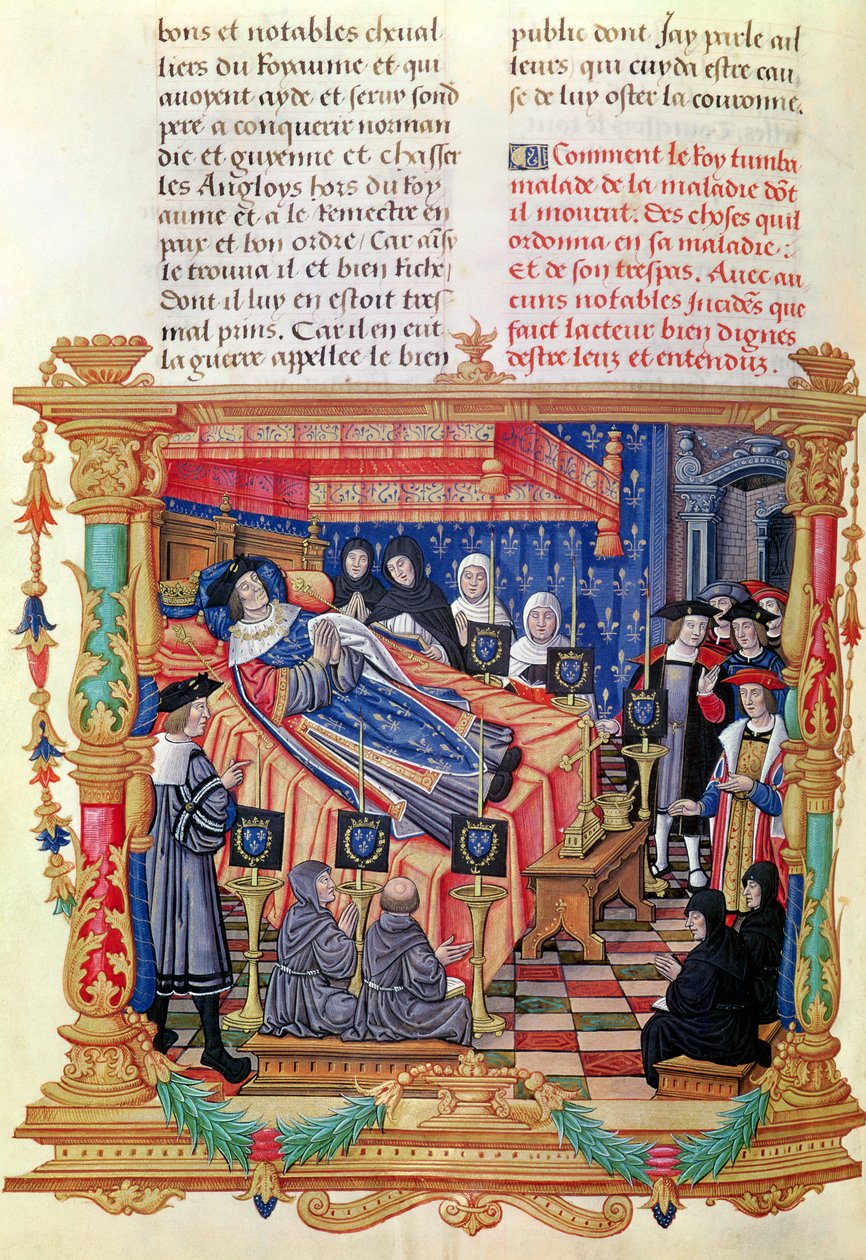 bons et notables cheual-
liers du Royaume et qui
auoyent ayde et seruy sond
pere a conquerir norman
die et guyenne et chasser
les Angloys hors du Roy
aume et a le Remectre en
paix et bon ordre / Car aīsy
le trouua il et bien Riche /
dont il luy en estoit tres
mal prins. Car il en eut
la guerre appellee le bien
public dont Jay parle ail
leurs, qui cuyda estre cau
se de luy oster la couronne.
Comment le Roy tumba
malade de la maladie dōt
il mourut. Des choses quil
ordonna en sa maladie :
Et de son trespas. Auec au
cuns notables Incidēs que
faict lacteur bien dignes
destre leuz et entenduz.